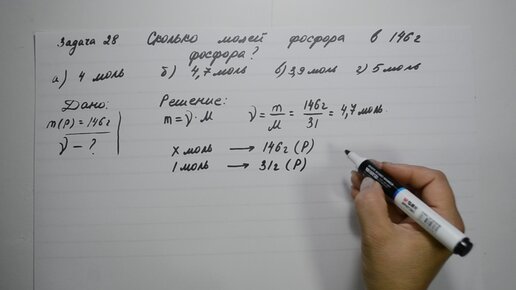 Задача 28 Сколько молей фосфора в 146г
фосфора?
а) 4 моль б) 4,7моль в) 3,9моль г) 5моль
Дано:
m(P)=146г
ν – ?
Решение:
m=ν·M ν=m/M=146г/31=4,7моль.
x моль → 146г(P)
1 моль → 31г(P)